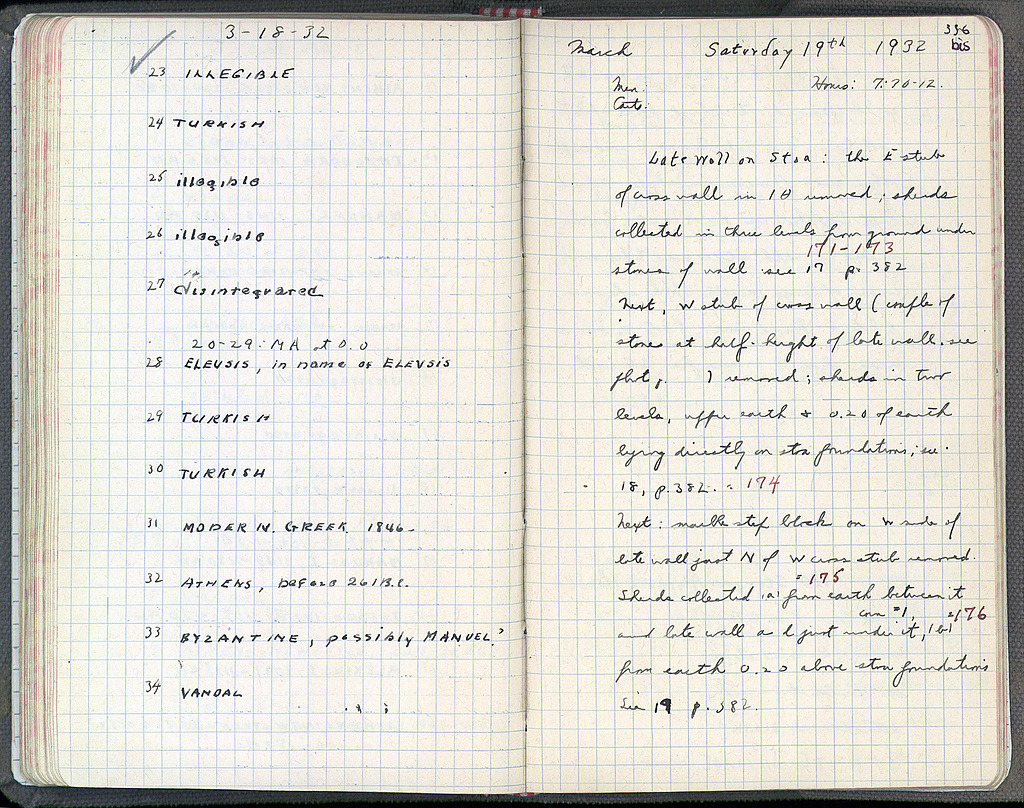 3-18-32
23 ILLEGIBLE
24 TURKISH
25 illegible
26 illegible
27 disintegrated
20-29: MA at 0.0
28 ELEUSIS, in name of ELEVSIS
29 TURKISH
30 TURKISH
31 MODERN. GREEK 1846-
32 ATHENS, before 261 B.C.
33 BYZANTINE, possibly MANUEL?
34 VANDAL
336
bis
March Saturday 19th 1932
Men: Hours: 7:30-12.
Carts:
Late Wall on Stoa: the E stub
of cross wall in removed; sherds
collected in three levels from ground under
171-173
stones of wall see 17 p. 382
Next, W stub of cross wall (couple of
stones at half-height of late wall. see
phot p. ) removed; sherds in two
levels, upper earth & 0.20 of earth
lying directly on stoa foundations; see
18, p. 382. = 174
Next: marble step block on W side of
late wall just N of W cross stub removed.
= 175
Sherds collected (a) from earth between it
coin #1, =176
and late wall and just under it, (b)
from earth 0.20 above stoa foundations
See 19 p. 382.